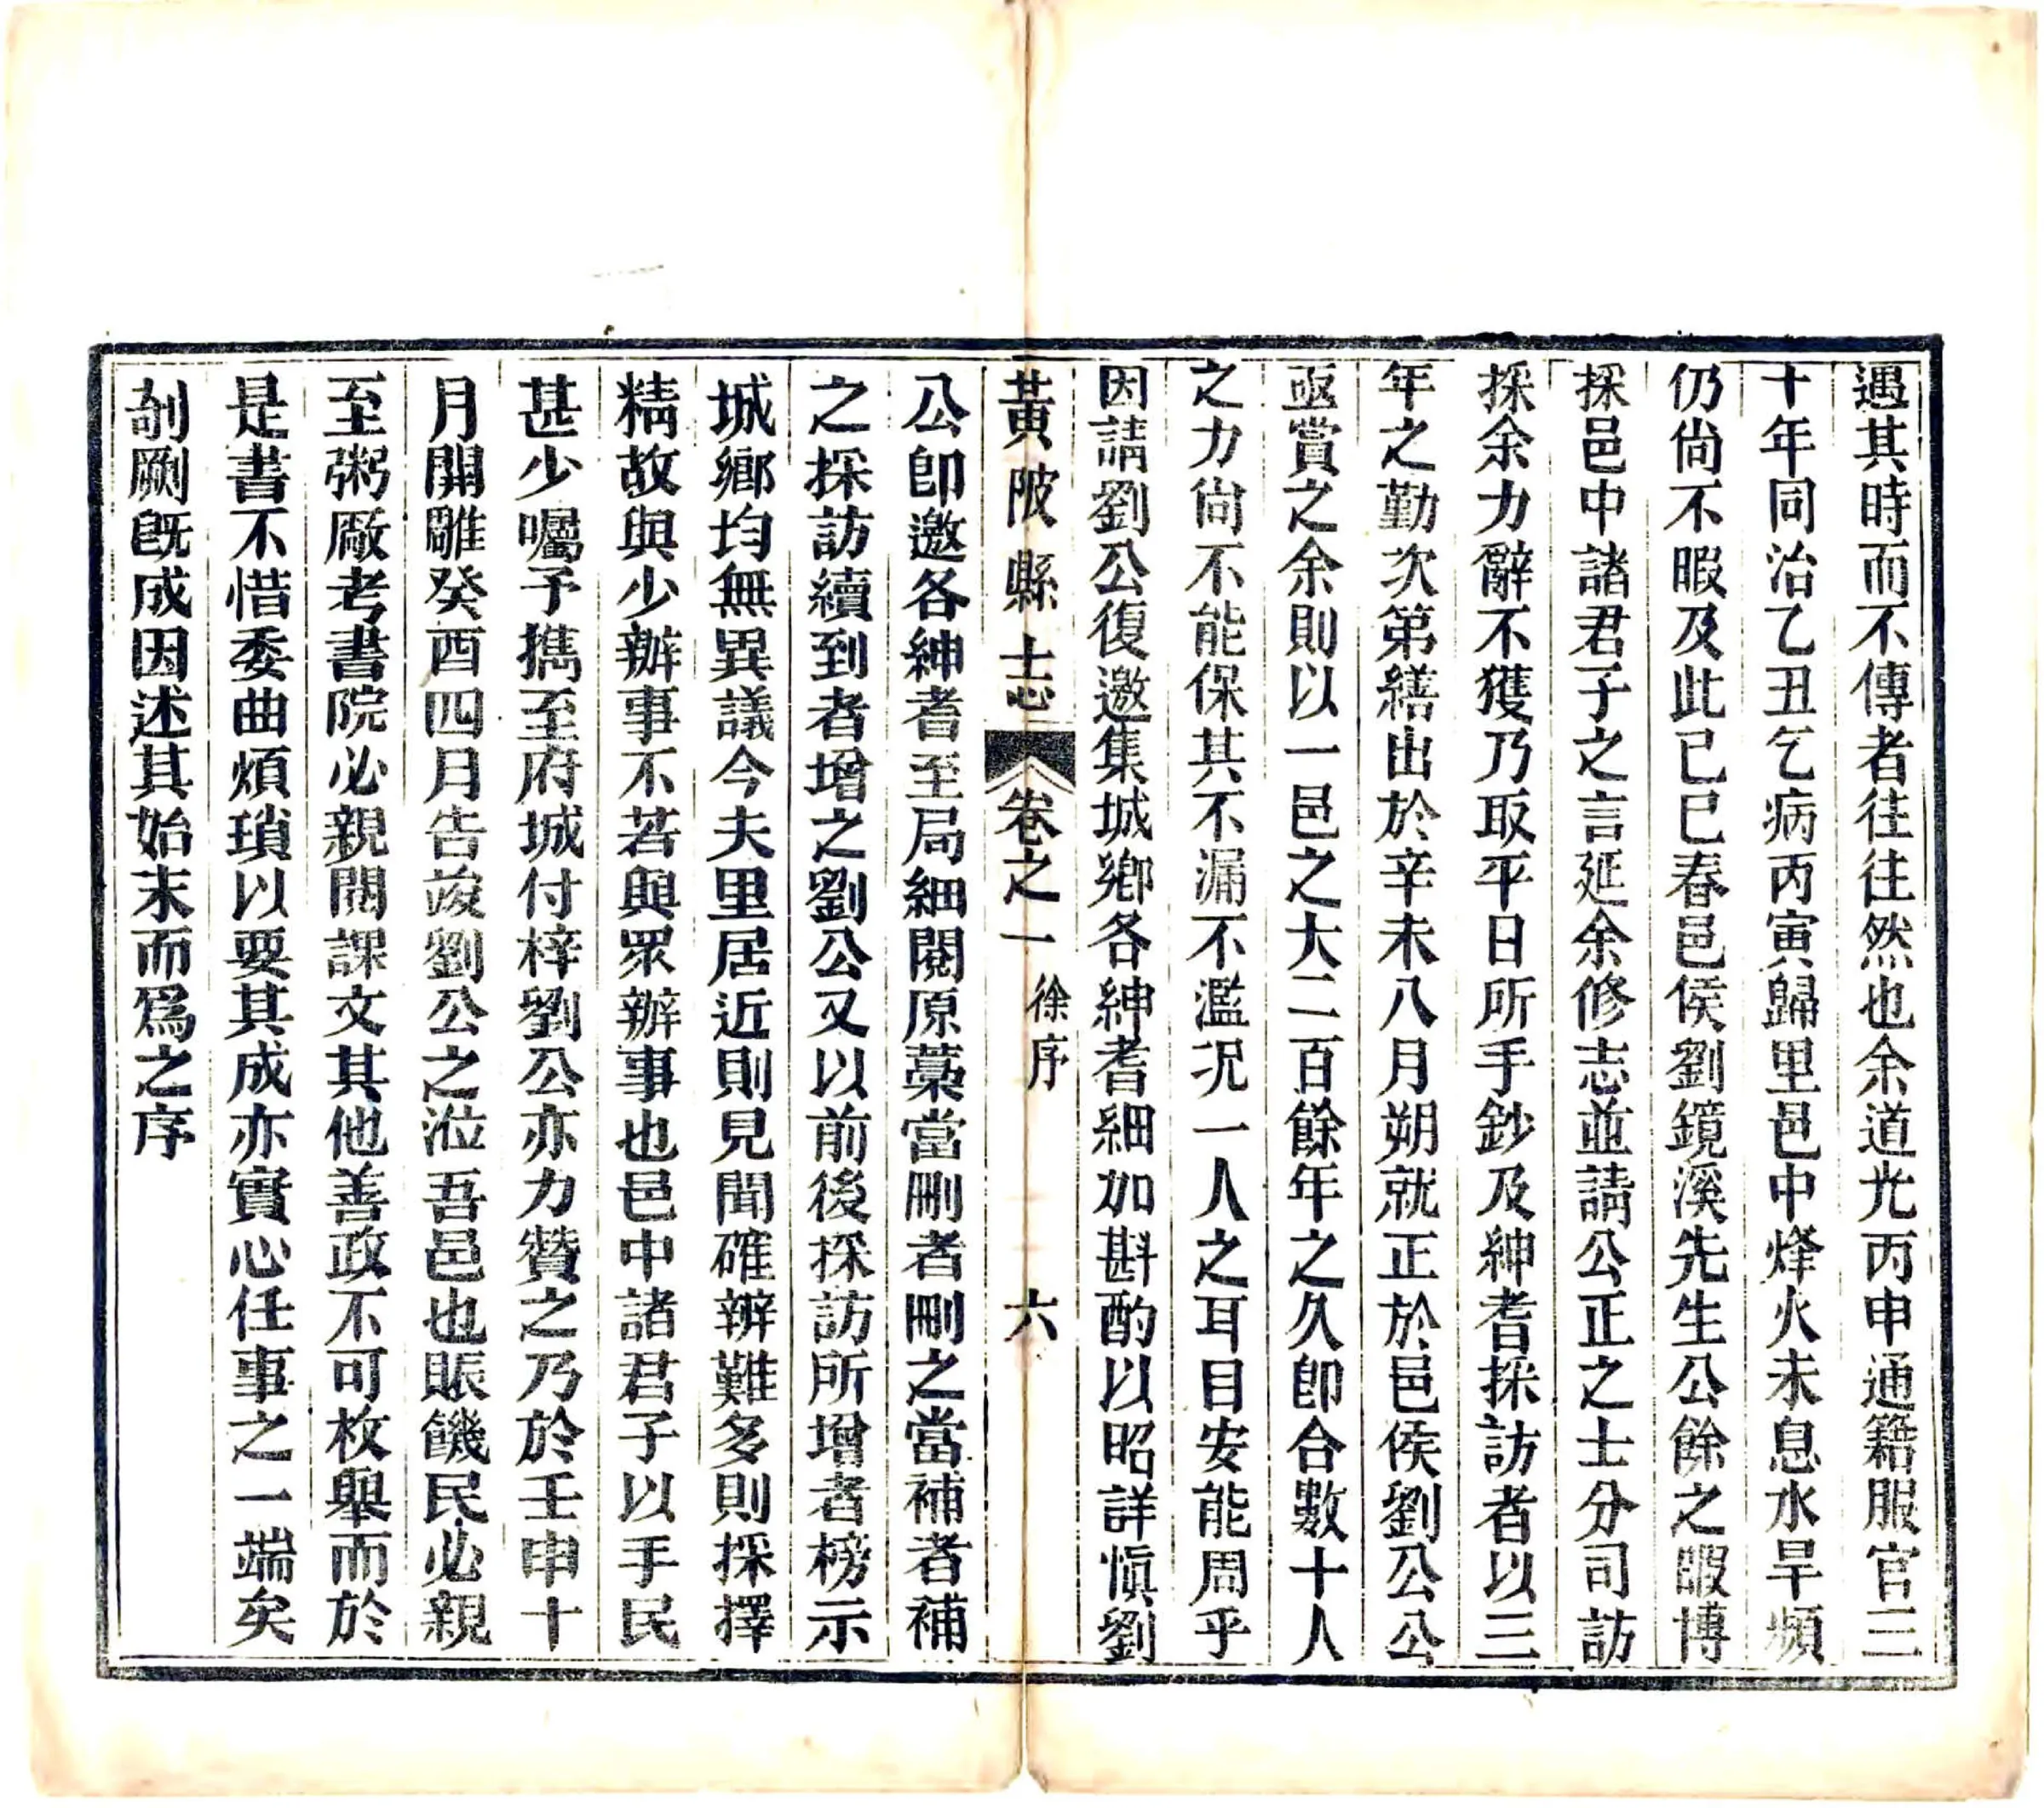 遇其時而不傳者往往然也余道光丙申通籍服官三
十年同治乙丑乞病丙寅歸里邑中烽火未息水旱頻
仍尙不暇及此已巳春邑侯劉鏡溪先生公餘之暇博
採邑中諸君子之言延余修志並請公正之士分司訪
採余力辭不獲乃取平日所手鈔及紳耆採訪者以三
年之勤次第繕出於辛未八月朔就正於邑侯劉公公
亟賞之余則以一邑之大二百餘年之久卽合數十人
之力尙不能保其不漏不濫況一人之耳目安能周乎
因請劉公復邀集城鄉各紳耆細加斟酌以昭詳愼劉
黃陂縣志 卷之一 徐序 六
公卽邀各紳耆至局細閱原藁當刪者刪之當補者補
之採訪續到者增之劉公又以前後採訪所增者榜示
城鄉均無異議今夫里居近則見聞確辨難多則採擇
精故與少辦事不若與眾辦事也邑中諸君子以手民
甚少囑予攜至府城付梓劉公亦力贊之乃於壬申十
月開雕癸酉四月告竣劉公之涖吾邑也賑饑民必親
至粥廠考書院必親閱課文其他善政不可枚舉而於
是書不惜委曲煩瑣以要其成亦實心任事之一端矣
剞劂既成因述其始末而爲之序